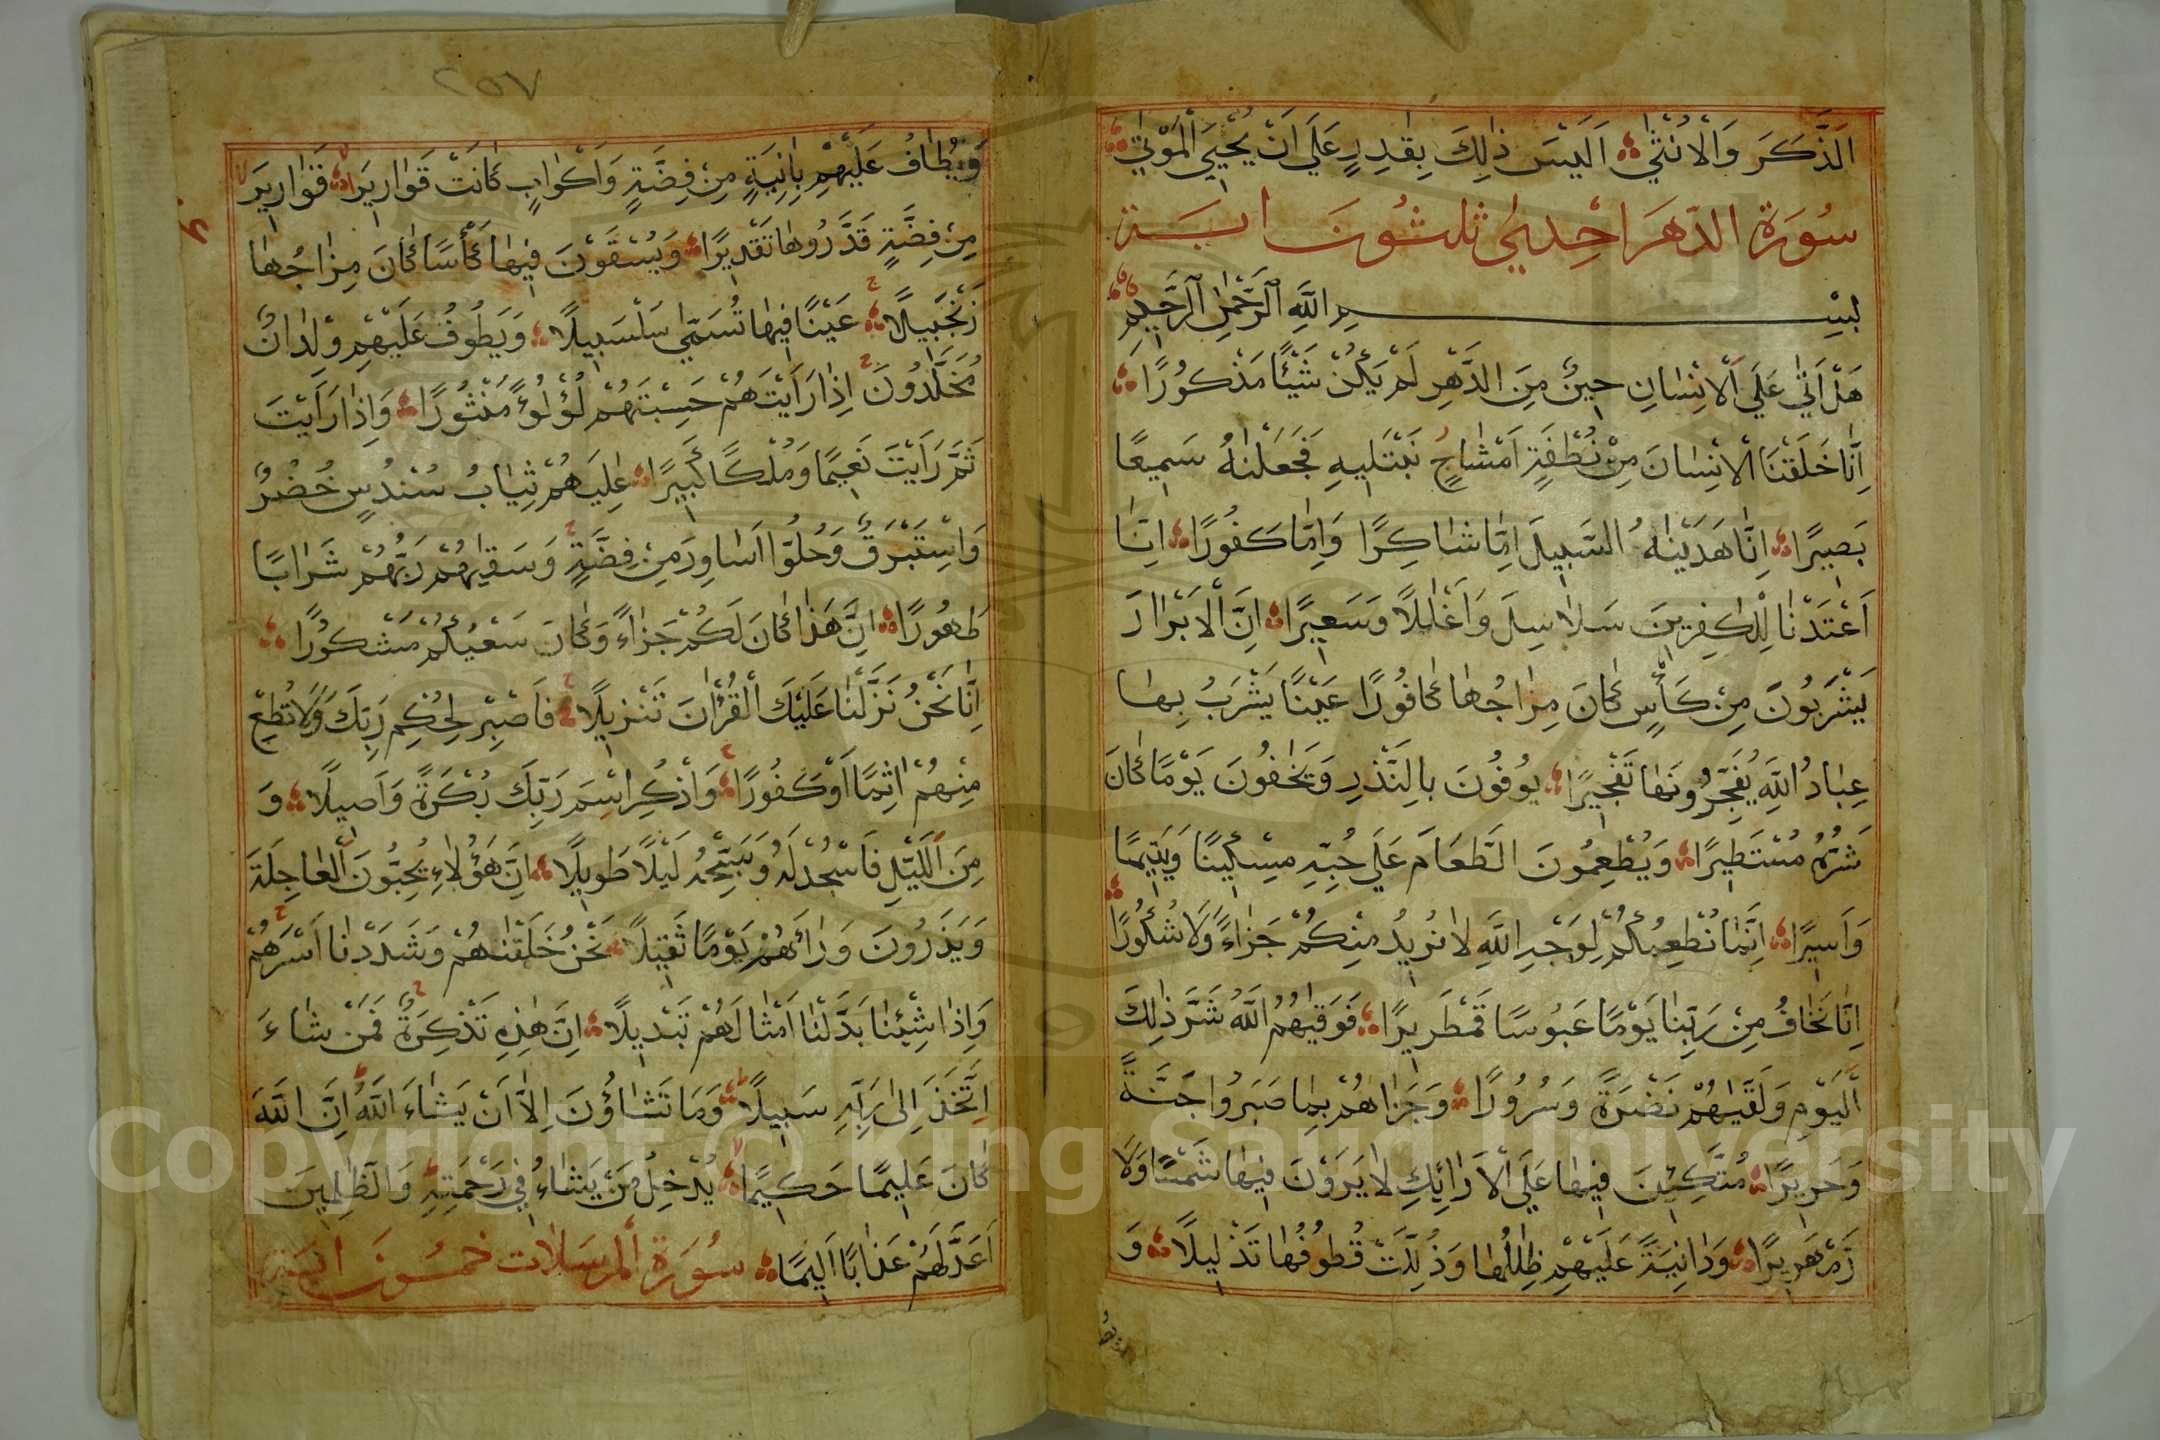 الذَّكَرَ وَالْاُنْثٰي اَلَيْسَ ذٰلِكَ بِقٰدِرٍ عَلَي اَنْ يُحْيِيَ الْمَوْتٰي
سُوْرَة الدّهَر احْديٰ ثلثُونَ ايَة
بِسْمِ اللّٰهِ الرَّحْمٰنِ الرَّحِيْمِ
هَلْ اَتٰي عَلَي الْاِنْسٰانِ حِينٌ مِنَ الدَّهْرِ لَمْ يَكُنْ شَيْئًا مَذْكُورًا
اِنّٰا خَلَقْنَا الْاِنْسٰانَ مِنْ نُطْفَةٍ اَمْشٰاجٍ نَبْتَلِيهِ فَجَعَلْنٰاهُ سَمِيعًا
بَصِيرًا اِنّٰا هَدَيْنٰاهُ السَّبِيلَ اِمّٰا شٰاكِرًا وَاِمّٰا كَفُورًا اِنّٰا
اَعْتَدْنٰا لِلْكٰفِرِينَ سَلٰاسِلَ وَاَغْلٰالًا وَسَعِيرًا اِنَّ الْاَبْرٰارَ
يَشْرَبُونَ مِنْ كَأْسٍ كٰانَ مِزٰاجُهٰا كٰافُورًا عَيْنًا يَشْرَبُ بِهٰا
عِبٰادُ اللّٰهِ يُفَجِّرُونَهٰا تَفْجِيرًا يُوفُونَ بِالنَّذْرِ وَيَخٰافُونَ يَوْمًا كٰانَ
شَرُّهُ مُسْتَطِيرًا وَيُطْعِمُونَ الطَّعَامَ عَلَي حُبِّهِ مِسْكِينًا وَيَتِيمًا
وَاَسِيرًا اِنَّمٰا نُطْعِمُكُمْ لِوَجْهِ اللّٰهِ لٰا نُرِيدُ مِنْكُمْ جَزٰاءً وَلَا شُكُورًا
اِنّٰا نَخٰافُ مِنْ رَبِّنٰا يَوْمًا عَبُوسًا قَمْطَرِيرًا فَوَقٰيهُمُ اللّٰهُ شَرَّ ذٰلِكَ
الْيَوْمِ وَلَقّٰيهُمْ نَضْرَةً وَسُرُورًا وَجَزٰاهُمْ بِمٰا صَبَرُوا جَنَّةً
وَحَرِيرًا مُتَّكِئِينَ فِيهٰا عَلَي الْاَرٰائِكِ لٰا يَرَوْنَ فِيهٰا شَمْسًا وَلَا
زَمْهَرِيرًا وَدٰانِيَةً عَلَيْهِمْ ظِلٰالُهٰا وَذُلِّلَتْ قُطُوفُهٰا تَذْلِيلًا وَ
٢٥٧
وَيُطٰافُ عَلَيْهِمْ بِاٰنِيَةٍ مِنْ فِضَّةٍ وَاَكْوٰابٍ كٰانَتْ قَوٰارِيرَا قَوٰارِيرَ
مِنْ فِضَّةٍ قَدَّرُوهٰا تَقْدِيرًا وَيُسْقَوْنَ فِيهٰا كَأْسًا كٰانَ مِزٰاجُهٰا
زَنْجَبِيلًا عَيْنًا فِيهٰا تُسَمّٰي سَلْسَبِيلًا وَيَطُوفُ عَلَيْهِمْ وِلْدٰانٌ
مُخَلَّدُونَ اِذٰا رَاَيْتَهُمْ حَسِبْتَهُمْ لُؤْلُؤًا مَنْثُورًا وَاِذٰا رَاَيْتَ
ثَمَّ رَاَيْتَ نَعِيمًا وَمُلْكًا كَبِيرًا عٰلِيَهُمْ ثِيٰابُ سُنْدُسٍ خُضْرٌ
وَاِسْتَبْرَقٌ وَحُلُّوا اَسٰاوِرَ مِنْ فِضَّةٍ وَسَقٰيهُمْ رَبُّهُمْ شَرٰابًا
طَهُورًا اِنَّ هٰذٰا كٰانَ لَكُمْ جَزٰاءً وَكٰانَ سَعْيُكُمْ مَشْكُورًا
اِنّٰا نَحْنُ نَزَّلْنٰا عَلَيْكَ الْقُرْاٰنَ تَنْزِيلًا فَاصْبِرْ لِحُكْمِ رَبِّكَ وَلَا تُطِعْ
مِنْهُمْ اٰثِمًا اَوْ كَفُورًا وَاذْكُرِ اسْمَ رَبِّكَ بُكْرَةً وَاَصِيلًا وَ
مِنَ اللَّيْلِ فَاسْجُدْ لَهُ وَسَبِّحْهُ لَيْلًا طَوِيلًا اِنَّ هٰؤُلٰاءِ يُحِبُّونَ الْعٰاجِلَةَ
وَيَذَرُونَ وَرٰاءَهُمْ يَوْمًا ثَقِيلًا نَحْنُ خَلَقْنٰاهُمْ وَشَدَدْنٰا اَسْرَهُمْ
وَاِذٰا شِئْنٰا بَدَّلْنٰا اَمْثٰالَهُمْ تَبْدِيلًا اِنَّ هٰذِهِ تَذْكِرَةٌ فَمَنْ شٰاءَ
اتَّخَذَ اِلٰي رَبِّهِ سَبِيلًا وَمٰا تَشٰاؤُنَ اِلّٰا اَنْ يَشٰاءَ اللّٰهُ اِنَّ اللّٰهَ
كٰانَ عَلِيمًا حَكِيمًا يُدْخِلُ مَنْ يَشٰاءُ فِي رَحْمَتِهِ وَالظّٰلِمِينَ
اَعَدَّ لَهُمْ عَذٰابًا اَلِيمًا سُوْرَة المرسَلات خمسُونَ ايَة
Copyright © King Saud University